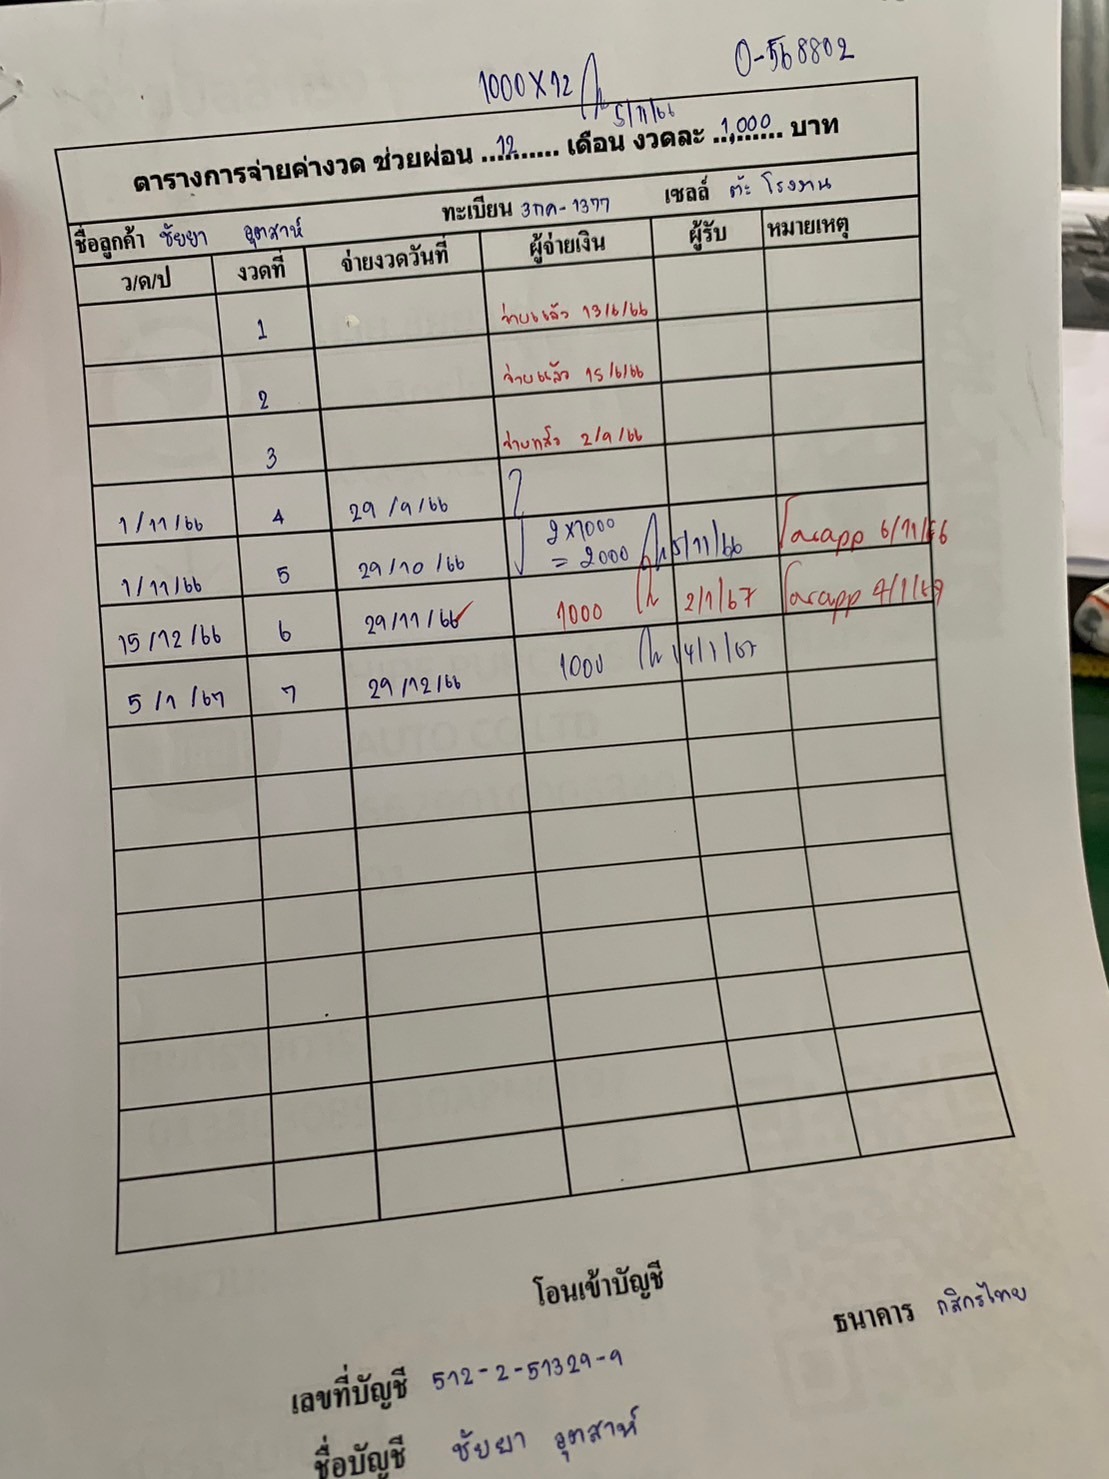 0-568802
1000 X 12
5/11/66
ตารางการจ่ายค่างวด ช่วยผ่อน ...12... เดือน งวดละ ...1,000... บาท
ชื่อลูกค้า ชัยยา อุตสาห์ ทะเบียน 3กค-1377 เซลล์ ต๊ะ โรงงาน
ว/ด/ป งวดที่ จ่ายงวดวันที่ ผู้จ่ายเงิน ผู้รับ หมายเหตุ
1 จ่ายแล้ว 13/6/66
2 จ่ายแล้ว 15/6/66
3 จ่ายแล้ว 2/9/66
1/11/66 4 29/9/66
1/11/66 5 29/10/66 2x1000 = 2000 5/11/66 6/11/66
15/12/66 6 29/11/66 1000 2/1/67 4/1/67
5/1/67 7 29/12/66 1000 14/1/67
โอนเข้าบัญชี
เลขที่บัญชี 512-2-51329-9 ธนาคาร กสิกรไทย
ชื่อบัญชี ชัยยา อุตสาห์